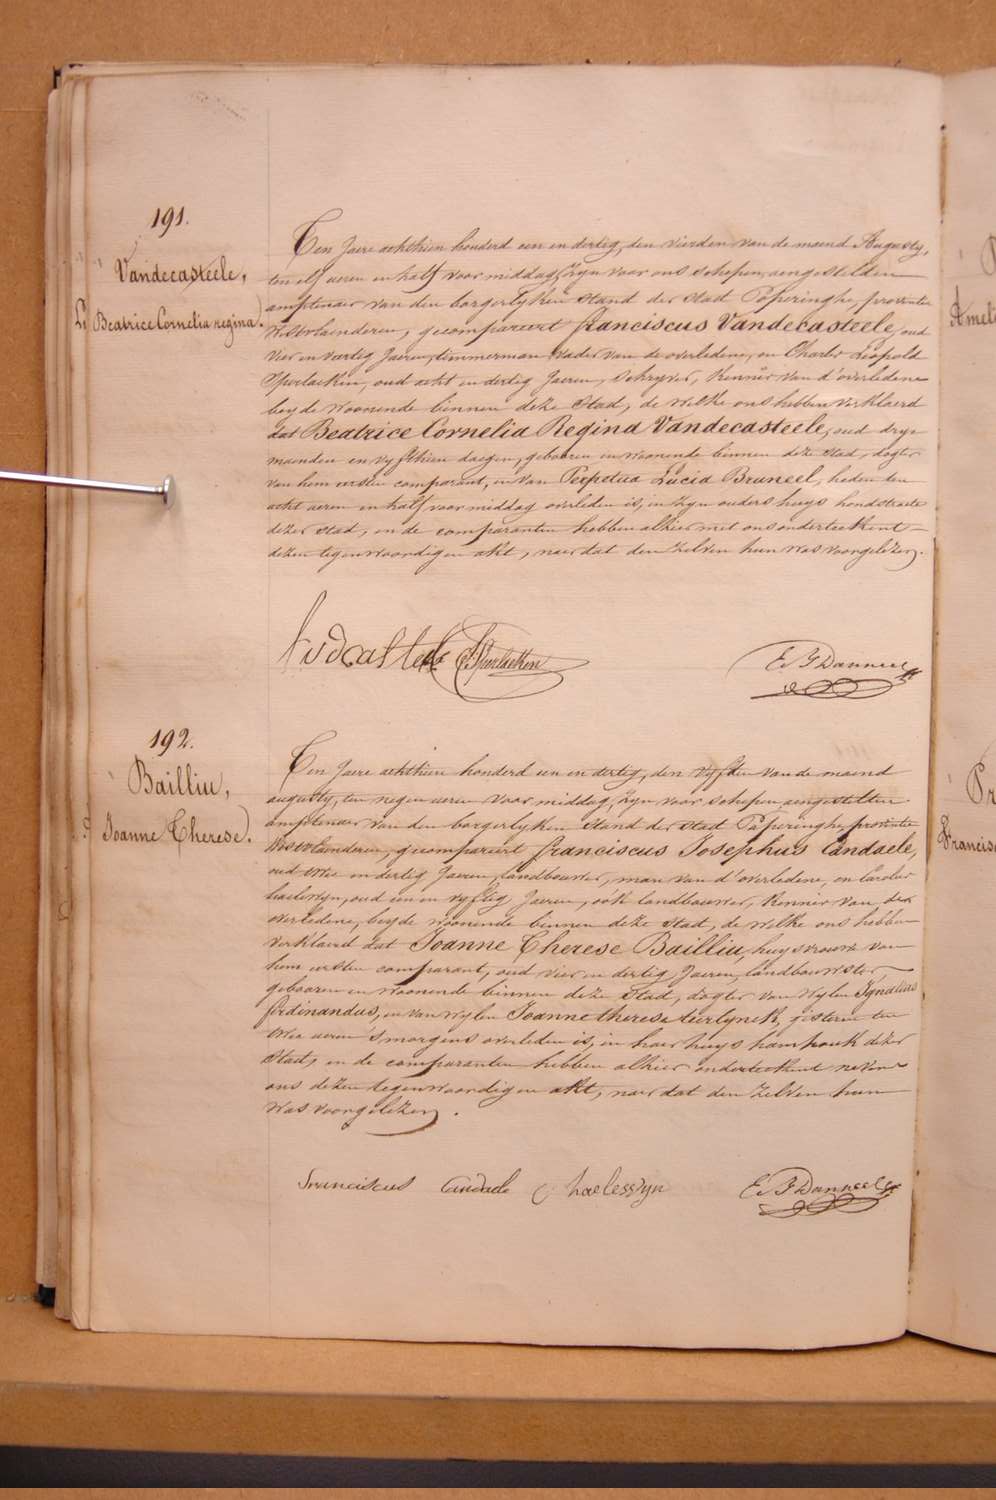 191.
Vandecasteele,
Beatrice Cornelia regina.
Ten Jaere achthien honderd een en dertig, den vierden van de maend Augusty,
ten elf ueren en half voor middag, Zyn voor ons schepen, aengestelden
amptenaer van den borgerlyken stand der stad Poperinghe, provintie
Westvlaenderen, gecompareert franciscus Vandecasteele, oud
vier en veertig Jaeren, timmerman, vader van de overledene, en Charles Léopold
Sperlaeken, oud acht en dertig Jaeren, schryver, Kennis van d'overledene
beyde woonende binnen deze Stad, de welke ons hebben verklaerd
dat Beatrice Cornelia Regina Vandecasteele, oud drye
maenden en vyfthien daegen, gebooren en woonende binnen deze stad, dogter
van hem eersten comparant, en van Perpetua Lucia Bruneel, heden ten
acht ueren en half voor middag overleden is, in zyn ouders huys hondstraete
dezer stad, en de comparanten hebben alhier met ons onderteekent
dezen tegenwoordigen akt, naer dat den Zelven hun was voorgelezen.
Sperlaeken
E. F Danneel
192.
Bailliu,
Joanne Therese.
Ten Jaere achthien honderd een en dertig, den vyfden van de maend
augusty, ten negen ueren voor middag, Zyn voor schepen aengestelden
amptenaer van den borgerlyken Stand der Stad Poperinghe provintie
Westvlaenderen, gecompareert franciscus Josephus Candaele,
oud twee en dertig Jaeren, landbouwer, man van d'overledene, en Carolus
haelewyn, oud een en vyftig Jaeren, ook landbouwer, Kennis van de
overledene, beyde woonende binnen deze Stad, de welke ons hebben
verklaerd dat Joanne Therese Bailliu, huysvrouw van
hem eersten comparant, oud vier en dertig Jaeren, landbouwster,
gebooren en woonende binnen deze Stad, dogter van wylen Ignatius
ferdinandus, en van wylen Joanne therese tierlynck, gisteren ten
twee ueren 's morgens overleden is, in haer huys hamhouk dezer
Stad, en de comparanten hebben alhier onderteekent nevens
ons dezen tegenwoordigen akt, naer dat den zelven hun
was voorgelezen.
Franciscus Candaele C haelewyn E. F Danneel